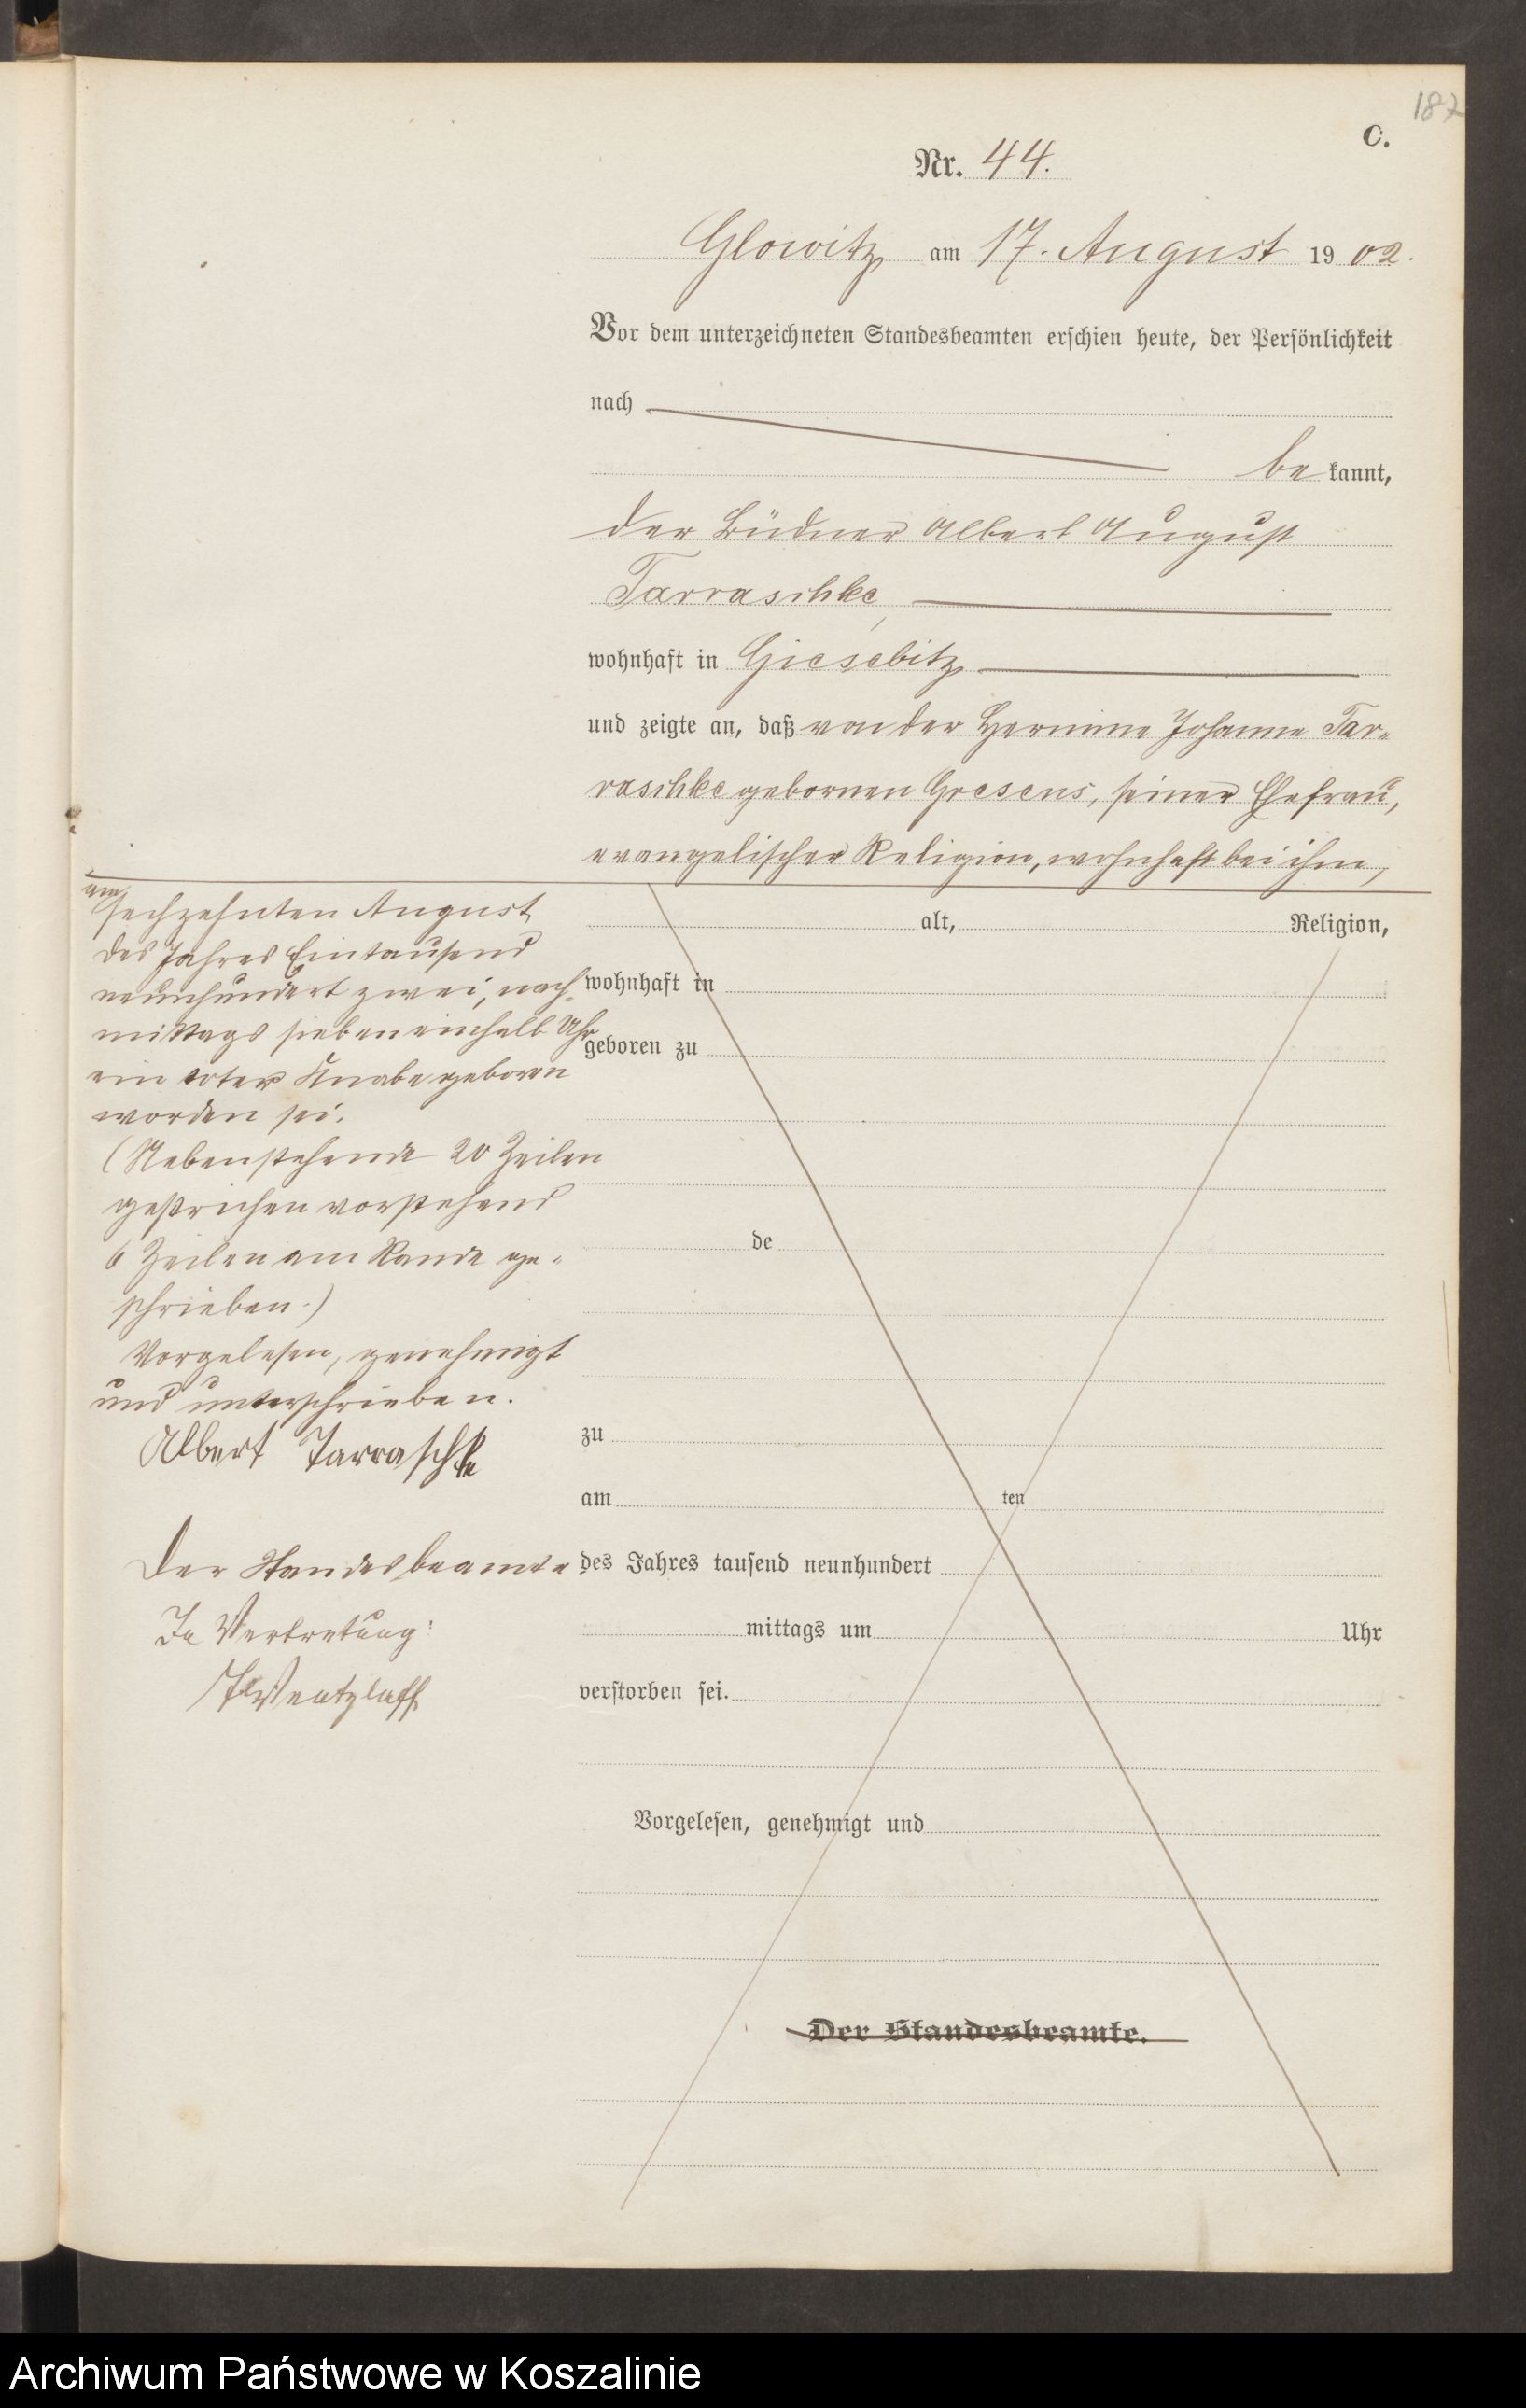 187
C.
Nr. 44.
Glowitz am 17. August 1902.
Vor dem unterzeichneten Standesbeamten erschien heute, der Persönlichkeit
nach
be kannt,
der Büdner Albert August
Tarraschke,
wohnhaft in Giesebitz
und zeigte an, daß von der Hermine Johanne Tar-
raschke gebornen Gresens, seiner Ehefrau,
evangelischer Religion, wohnhaft bei ihm,
am sechzehnten August
des Jahres Eintausend
neunhundert zwei, nach-
mittags sieben einhalb Uhr
ein toter Knabe geboren
worden sei.
(Nebenstehende 20 Zeilen
gestrichen vorstehend
6 Zeilen am Rande ge-
schrieben.)
Vorgelesen, genehmigt
und unterschrieben.
Albert Tarraschke
Der Standesbeamte
In Vertretung:
Wentzlaff
alt, Religion,
wohnhaft in
geboren zu
de
zu
am ten
des Jahres tausend neunhundert
mittags um Uhr
verstorben sei.
Vorgelesen, genehmigt und
Der Standesbeamte.
Archiwum Państwowe w Koszalinie